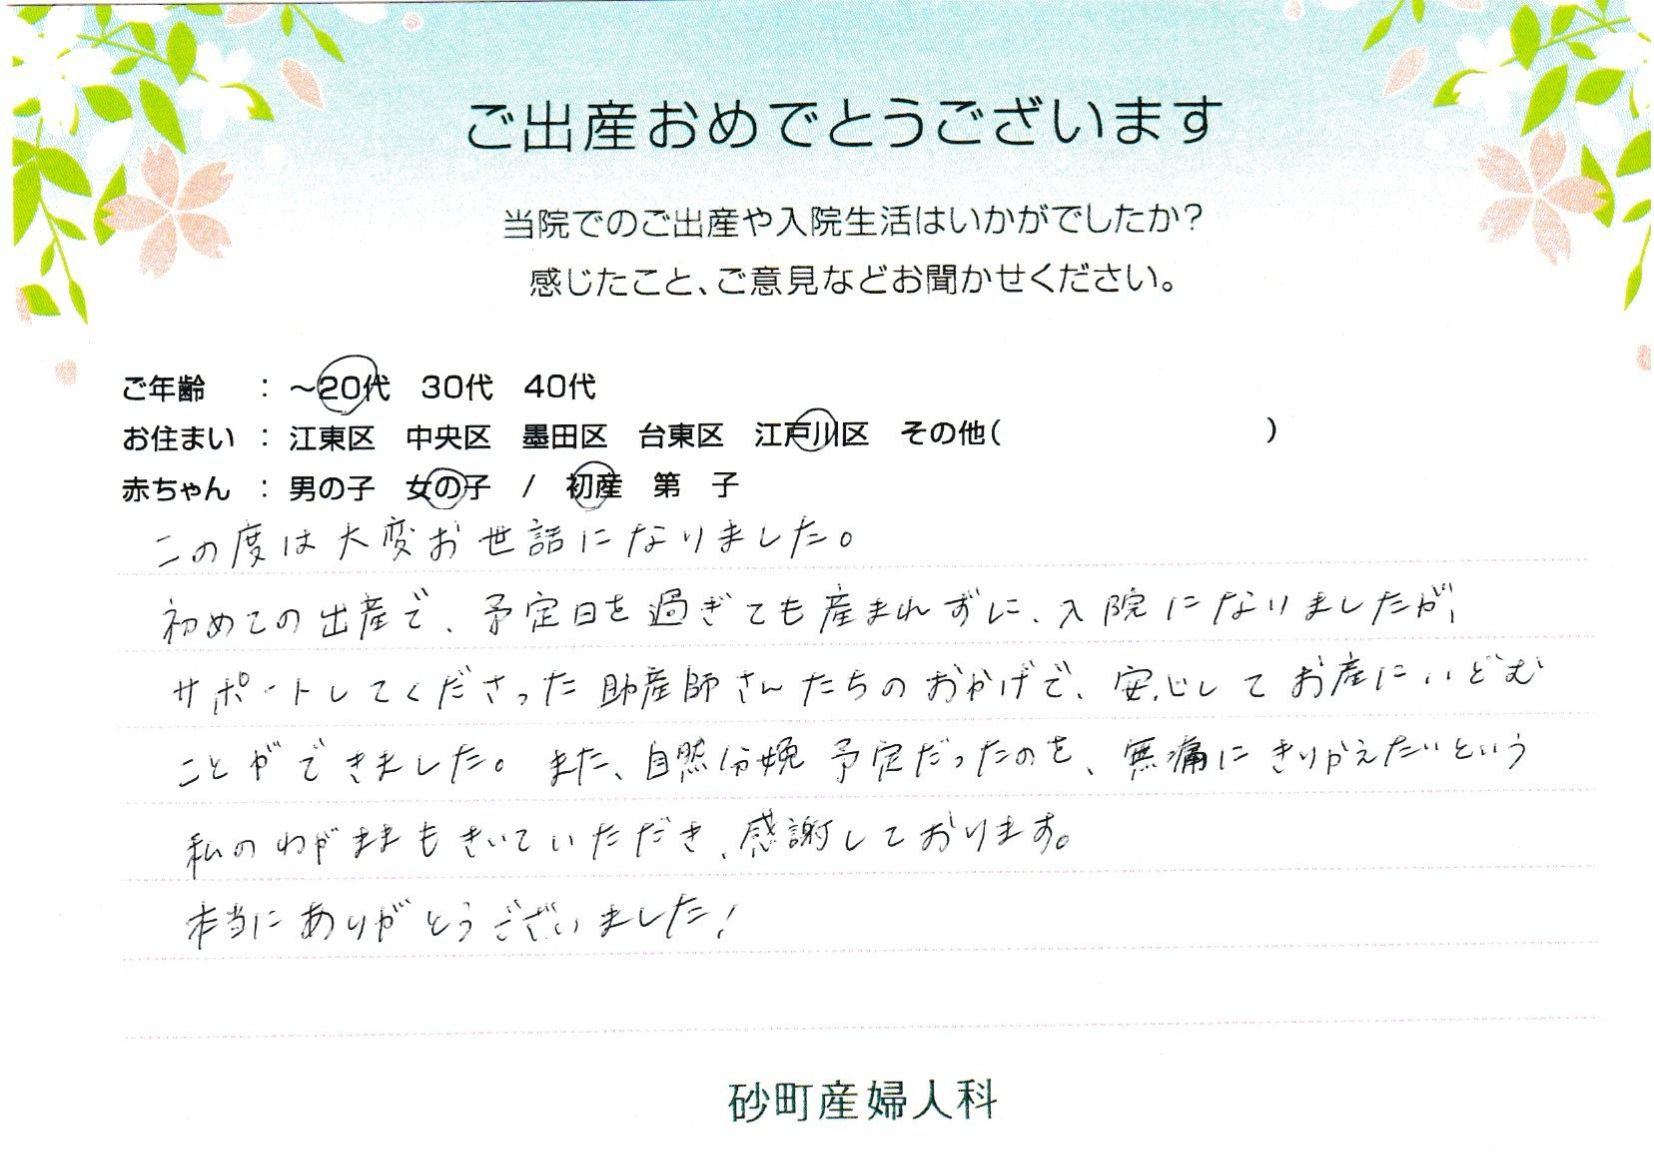 ご出産おめでとうございます
当院でのご出産や入院生活はいかがでしたか?
感じたこと、ご意見などお聞かせください。
ご年齢 : ～20代 30代 40代
お住まい : 江東区 中央区 墨田区 台東区 江戸川区 その他( )
赤ちゃん : 男の子 女の子 / 初産 第 子
この度は大変お世話になりました。
初めての出産で、予定日を過ぎても産まれずに、入院になりましたが、
サポートしてくださった助産師さんたちのおかげで、安心してお産にいどむ
ことができました。また、自然分娩予定だったのを、無痛にきりかえたいという
私のわがままもきいていただき、感謝しております。
本当にありがとうございました!
砂町産婦人科